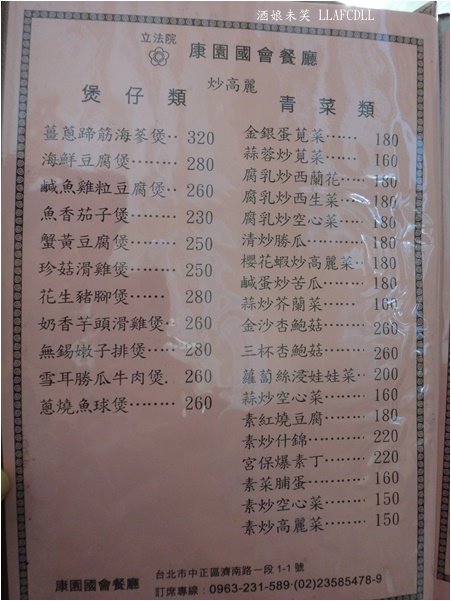 酒娘未笑 LLAFCDLL
立法院
康園國會餐廳
炒高麗
煲仔類
薑蔥蹄筋海蔘煲‥ 320
海鮮豆腐煲‥‥‥‥ 280
鹹魚雞粒豆腐煲‥ 260
魚香茄子煲‥‥‥ 230
蟹黃豆腐煲‥‥‥ 250
珍菇滑雞煲‥‥‥ 250
花生豬腳煲‥‥‥ 280
奶香芋頭滑雞煲‥ 260
無錫嫩子排煲‥‥ 280
雪耳勝瓜牛肉煲‥ 260
蔥燒魚球煲‥‥‥ 260
青菜類
金銀蛋莧菜‥‥‥ 180
蒜蓉炒莧菜‥‥‥ 160
腐乳炒西蘭花‥‥ 180
腐乳炒西生菜‥‥ 180
腐乳炒空心菜‥‥ 180
清炒勝瓜‥‥‥‥ 180
櫻花蝦炒高麗菜‥ 180
鹹蛋炒苦瓜‥‥‥ 180
蒜炒芥蘭菜‥‥‥ 160
金沙杏鮑菇‥‥‥ 260
三杯杏鮑菇‥‥‥ 260
蘿蔔絲浸娃娃菜‥ 200
蒜炒空心菜‥‥‥ 160
素紅燒豆腐‥‥‥ 180
素炒什錦‥‥‥‥ 220
宮保爆素丁‥‥‥ 220
素菜脯蛋‥‥‥‥ 160
素炒空心菜‥‥‥ 150
素炒高麗菜‥‥‥ 150
康園國會餐廳
台北市中正區濟南路一段1-1號
訂席專線：0963-231-589‧(02)23585478-9